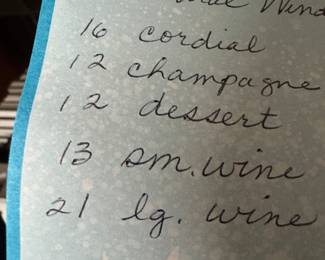 Wind
16 cordial
12 champagne
12 dessert
13 sm. wine
21 lg. wine